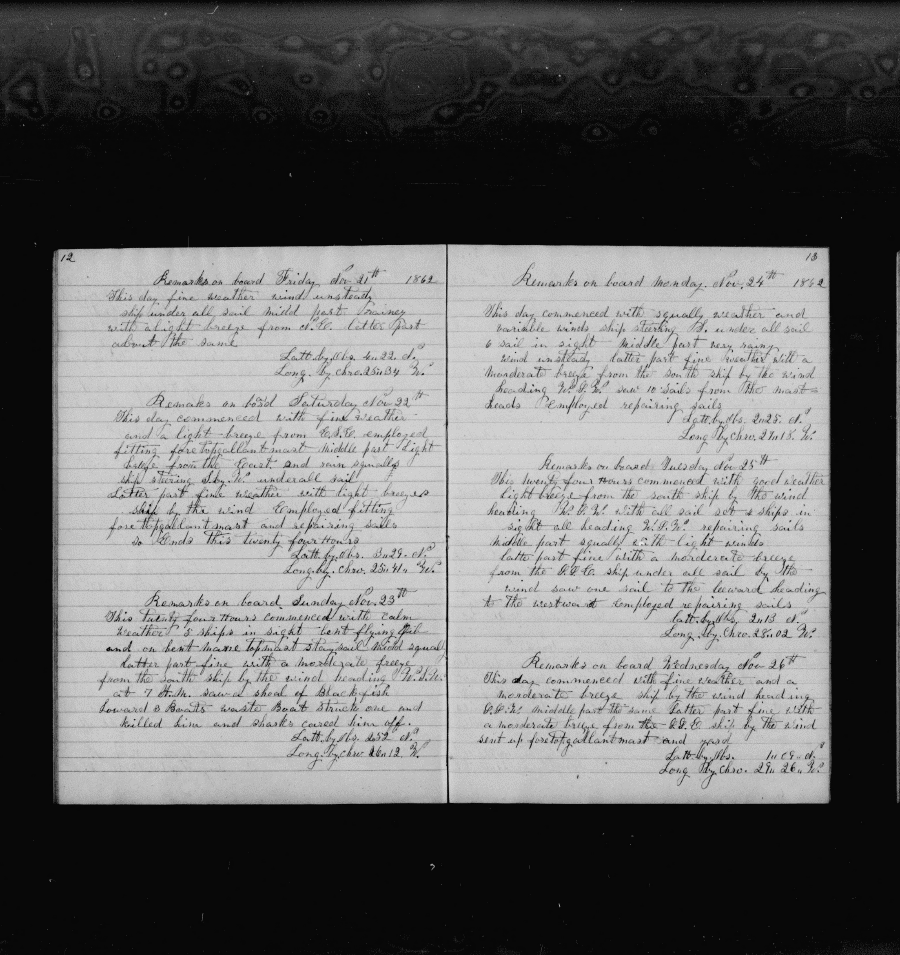 12
Remarks on board Friday Nov 21th 1862
This day fine weather wind unsteady
ship under all sail midd part rainey
with a light breeze from N.E. latter part
about the same
Latt by Obs. 4n22. N.
Long. by Chro. 25n34 W.
Remaks on board Saturday Nov 22th
This day commenced with fine weather
and a light breeze from E.S.E. employed
fitting foretopgallantmast middle part light
breeze from the East and rain squalls
ship steering S.by.W. underall sail
Latter part fine weather with light breezes
ship by the wind Employed fitting
foretopgallantmast and repairing sails
so Ends this twenty four Hours
Latt. by Obs. 3n29. N.
Long by. Chro. 25n41n W.
Remarks on board Sunday Nov. 23th
This twenty four Hours commenced with calm
Weather 5 ships in sight bent flying Jib
and on bent maine topmast staysail midd squally
Latter part fine with a morderate breeze
from the south ship by the wind heading W.S.W.
at 7 A.M. saw a shoal of Blackfish
Loward 3 Boats waste Boat struck one and
killed him and sharks cared him off.
Latt. by Obs. 2n52 N.
Long. By chro 26n12 W.
13
Remarks on board monday Nov. 24th 1862
This day commenced with squally weather and
varible winds ship steering S. under all sail
6 sail in sight middle part very rainy
wind unsteady latter part fine weather with a
morderate breeze from the south ship by the wind
heading W.S.W. saw 10 sails from the mast=
heads Employed repairing sails
Latt. by Obs. 2n25. N.
Long By Chro. 27n18. W.
Remarks on board Tuesday Nov 25th
This twenty four Hours commenced with good weather
light breeze from the south ship by the wind
heading W.S.W. with all sail set 2 ships in
sight all heading W.S.W. repairing sails
middle part squally with light winds
latter part fine with a morderate breeze
from the S.S.E. ship under all sail by the
wind saw one sail to the leeward heading
to the westward Employed repairing sails
Latt. by Obs 2n13 N.
Long. By Chro. 28n02 W.
Remarks on board Wednesday Nov 26th
This day commenced with fine weather and a
morderate breeze ship by the wind heading
S.S.W. middle part the same latter part fine with
a morderate breeze from the E.S.E. ship by the wind
sent up foretopgallantmast and yard
Latt. by Obs. 1n09n N.
Long By Chro. 29n26n W.